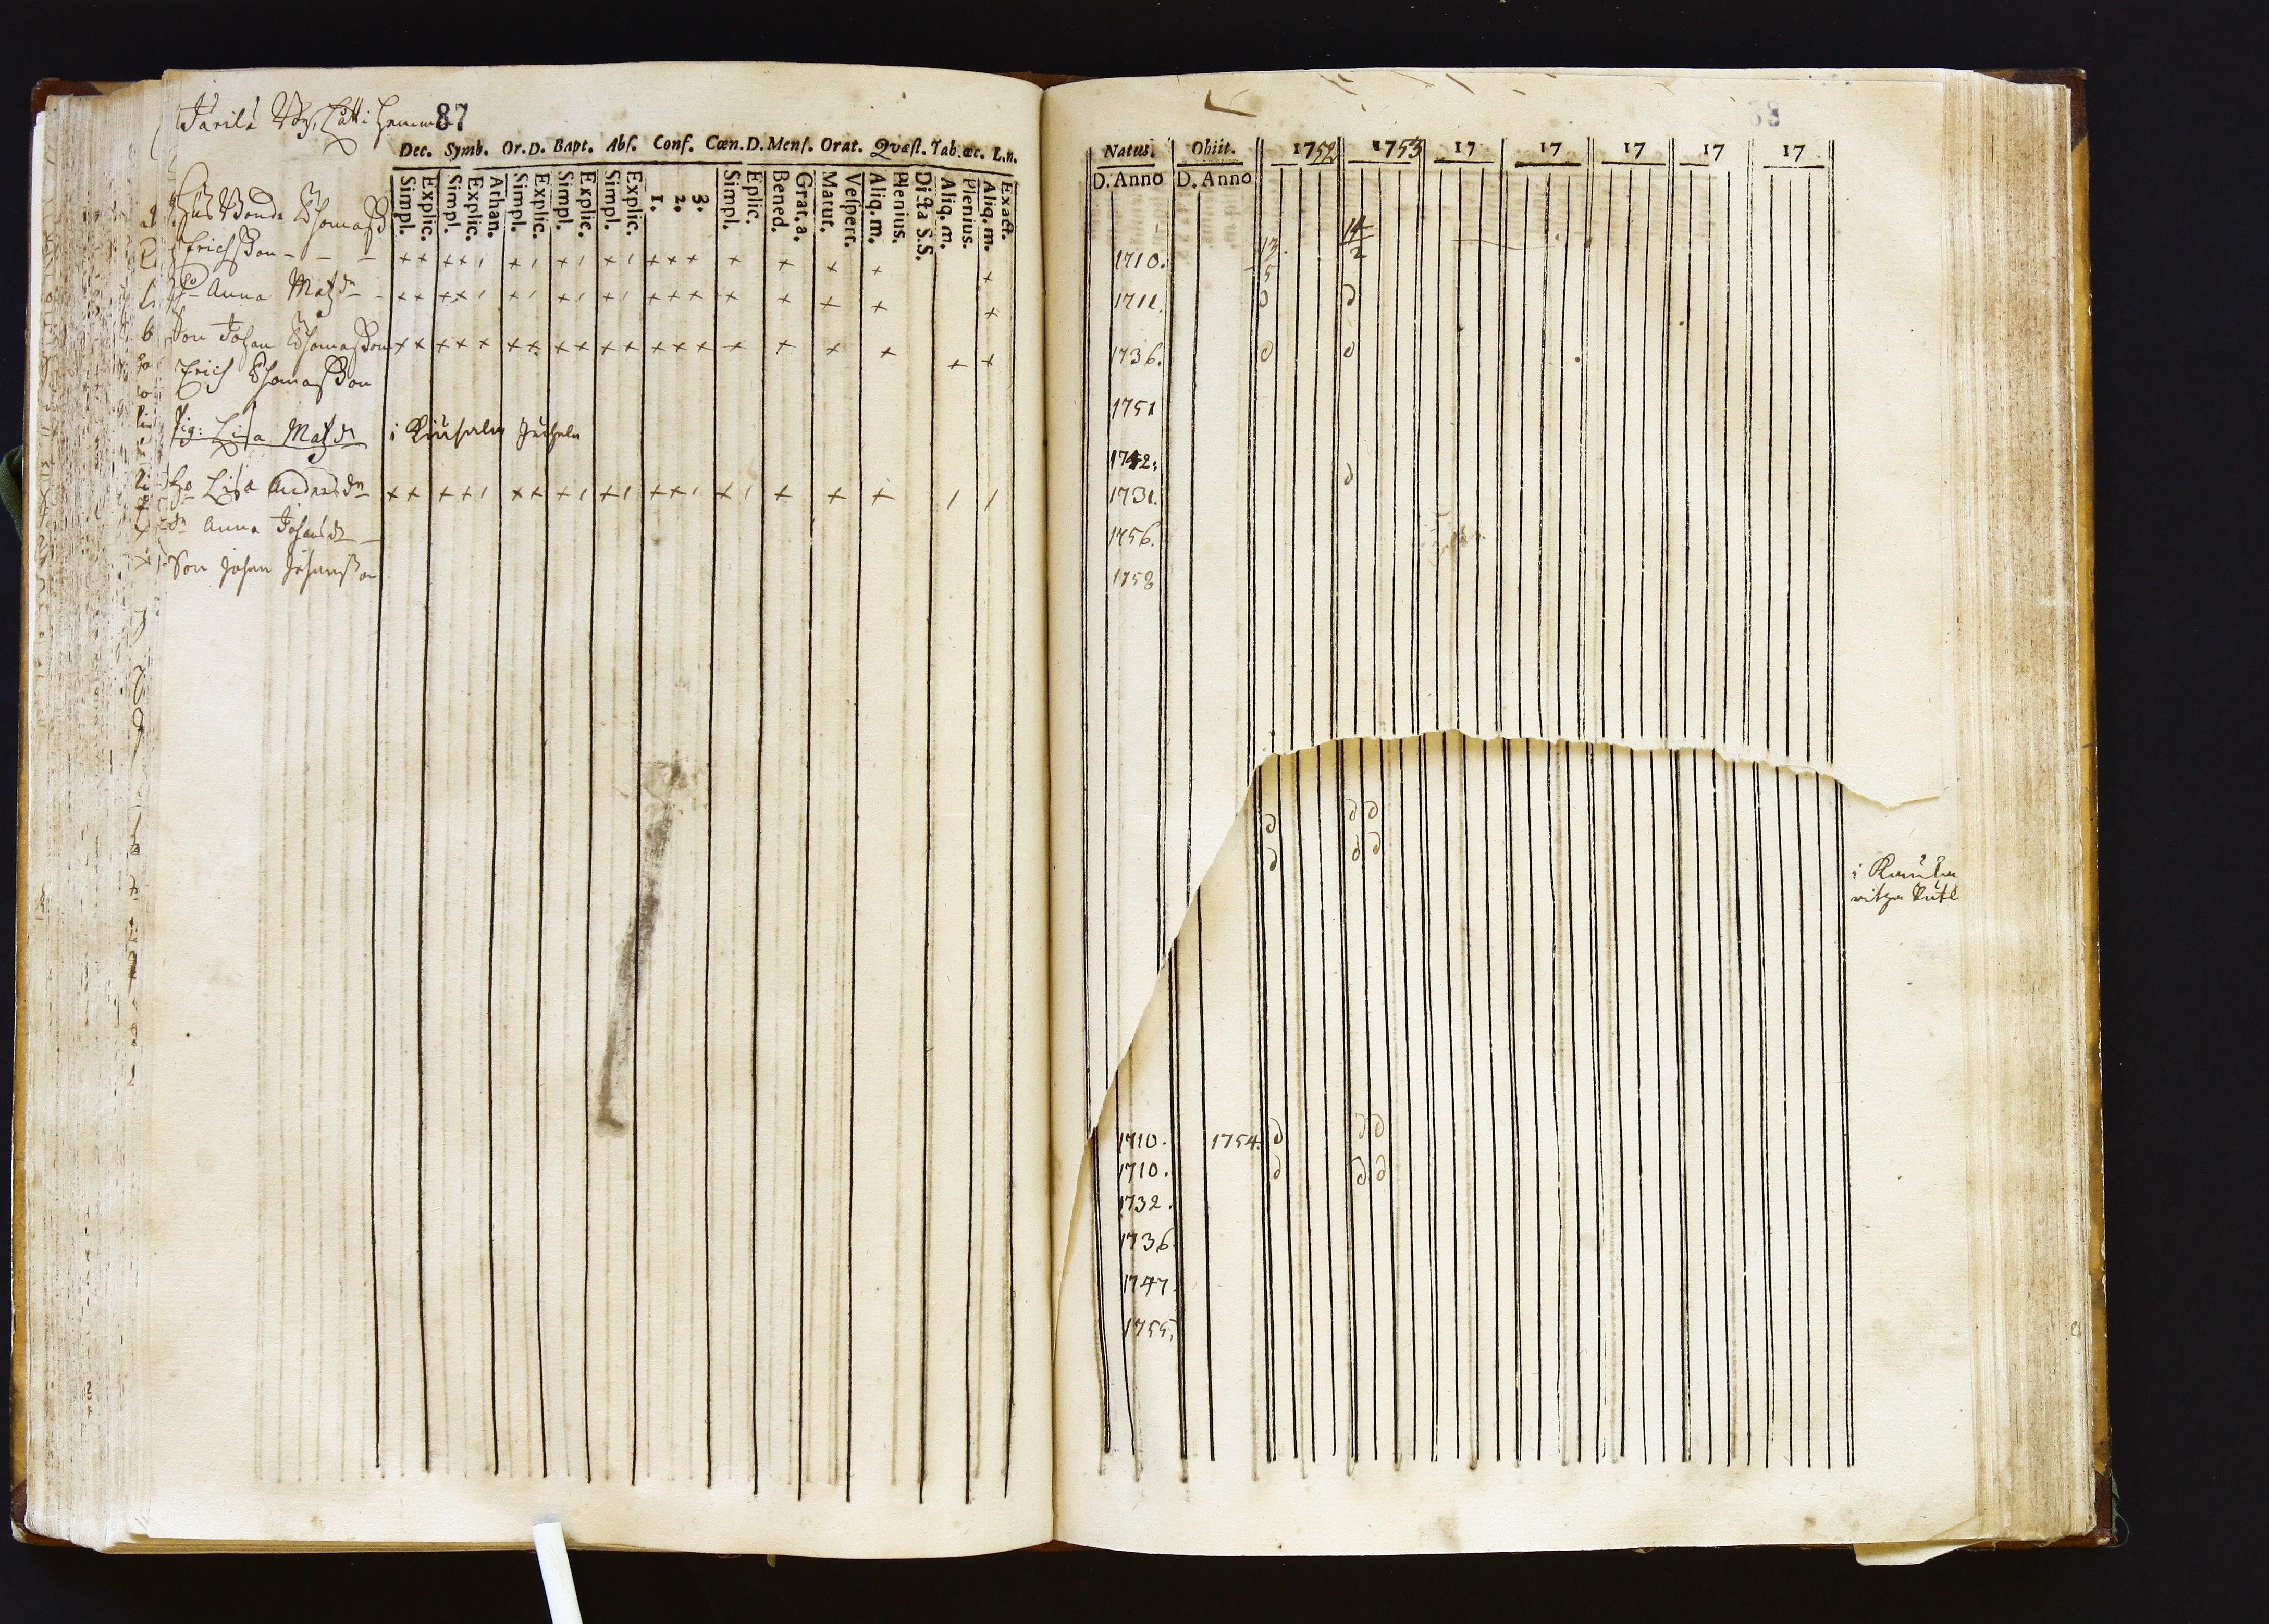 87
Dec. Symb. Or. D. Bapt. Abs. Conf. Cœn. D. Mens. Orat. Qvæst. Tab. œc. L.n.
Simpl. Explic. Simpl. Explic. Athan. Simpl. Explic. Simpl. Explic. Simpl. Explic. 1. 2. 3. Simpl. Eplic. Bened. Grat. a. Matut. Vesperr. Aliq. m. Plenius. Dicta S.S. Aliq. m. Plenius. Aliq. m. Exact.
Erichsson - - - + + + + , + , + , + , + + + + + + + +
Anna Matzdr - + + + + , + , + , + , + + + + + + + +
Son Johan Thomasson + + + + + + + + + + + + + + + + + + + +
Erich Thomasson
Pig: Lisa Matzdr i
Lisa Andersdr + + + + , + + + , + , + + , + , + + + / /
dr Anna Johansdr
Son Johan Johansson
38
Natus. Obiit. 1752 1753 17 17 17 17 17
D. Anno D. Anno
13 14
5 2
1710.
1711.
1736.
1751
1742.
1731.
1756.
1758
i
1710. 1754.
1710.
1732.
1736.
1747.
1755.